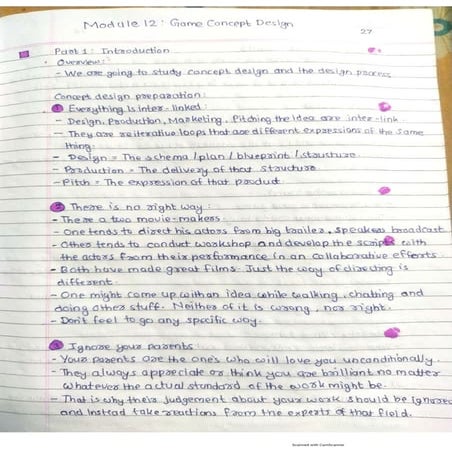 Module 12: Game Concept Design
27
Part 1: Introduction
Overview:
- We are going to study concept design and the design process
Concept design preparation:
1 Everything is inter-linked:
- Design, Production, Marketing, Pitching the idea are inter-link.
- They are reiterative loops that are different expressions of the same
thing.
- Design = The schema / plan / blueprint / structure.
- Production = The delivery of that structure
- Pitch = The expression of that product.
2 There is no right way:
- There a two movie-makers.
- One tends to direct his actors from big trailer, speakers broadcast
- Other tends to conduct workshop and develop the script with
the actors from their performance in an collaborative efforts.
- Both have made great films. Just the way of directing is
different.
- One might come up with an idea while walking, chatting and
doing other stuff. Neither of it is wrong, nor right.
- Don't feel to go any specific way.
3 Ignore your parents:
- Your parents are the one's who will love you unconditionally.
- They always appreciate or think you are brilliant no matter
whatever the actual standard of the work might be.
- That is why their judgement about your work should be ignored
and instead take reactions from the experts of that field.
Scanned with CamScanner